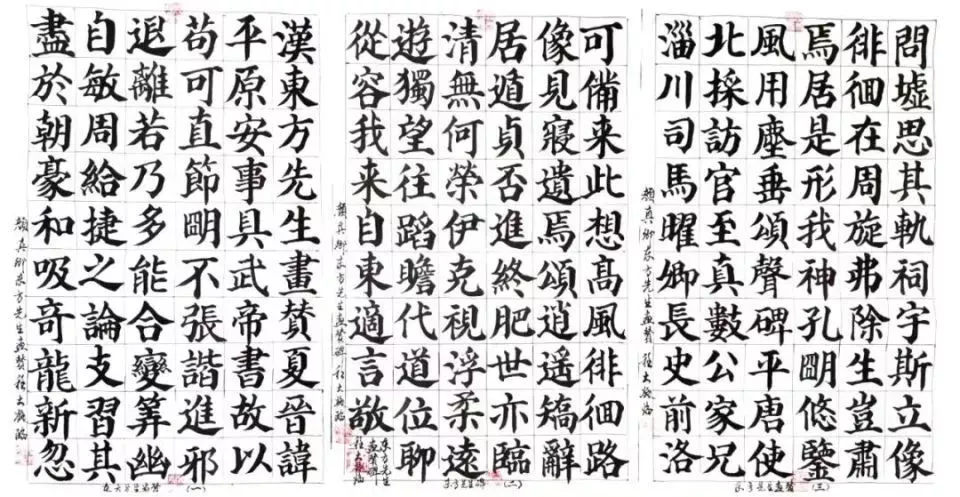 漢東方先生畫贊夏晉諱
平原安事具武帝書故以
苟可直節眀不張諧進邪
退離若乃多能合變筭幽
自敏周給捷之論支習其
盡於朝豪和吸奇龍新忽
顏真卿東方先生畫贊碑 程大臨
(一)
可備来此想高風徘徊路
像見寢遺焉頌逍遥矯辭
居遁貞否進終肥世亦臨
清無何榮伊克視浮柔遠
遊獨望往蹈瞻代道位聊
從容我来自東適言敬
東方先生
畫贊碑
程大臨
顏真卿東方先生畫贊碑 程大臨
(二)
問墟思其軌祠宇斯立像
徘徊在周旋弗除生豈肅
焉居是形我神孔眀悠鑒
風用塵垂頌聲碑平唐使
北採訪官至真數公家兄
淄川司馬曜卿長史前洛
顏真卿東方先生畫贊碑 程大臨
東方先生畫贊 (三)